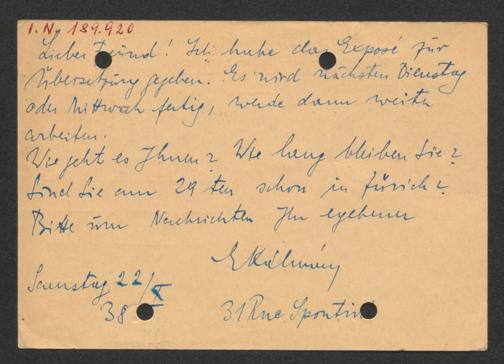 I. N. 189.920
Lieber Freund! Ich habe das Exposé für
Übersetzung gegeben. Es wird nächsten Dienstag
oder Mittwoch fertig, werde dann weiter
arbeiten.
Wie geht es Ihnen? Wie lang bleiben Sie?
Sind Sie am 29ten schon in Zürich?
Bitte um Nachrichten Ihr ergebener
EKálmán
Samstag 22/X
38
31 Rue Spontini